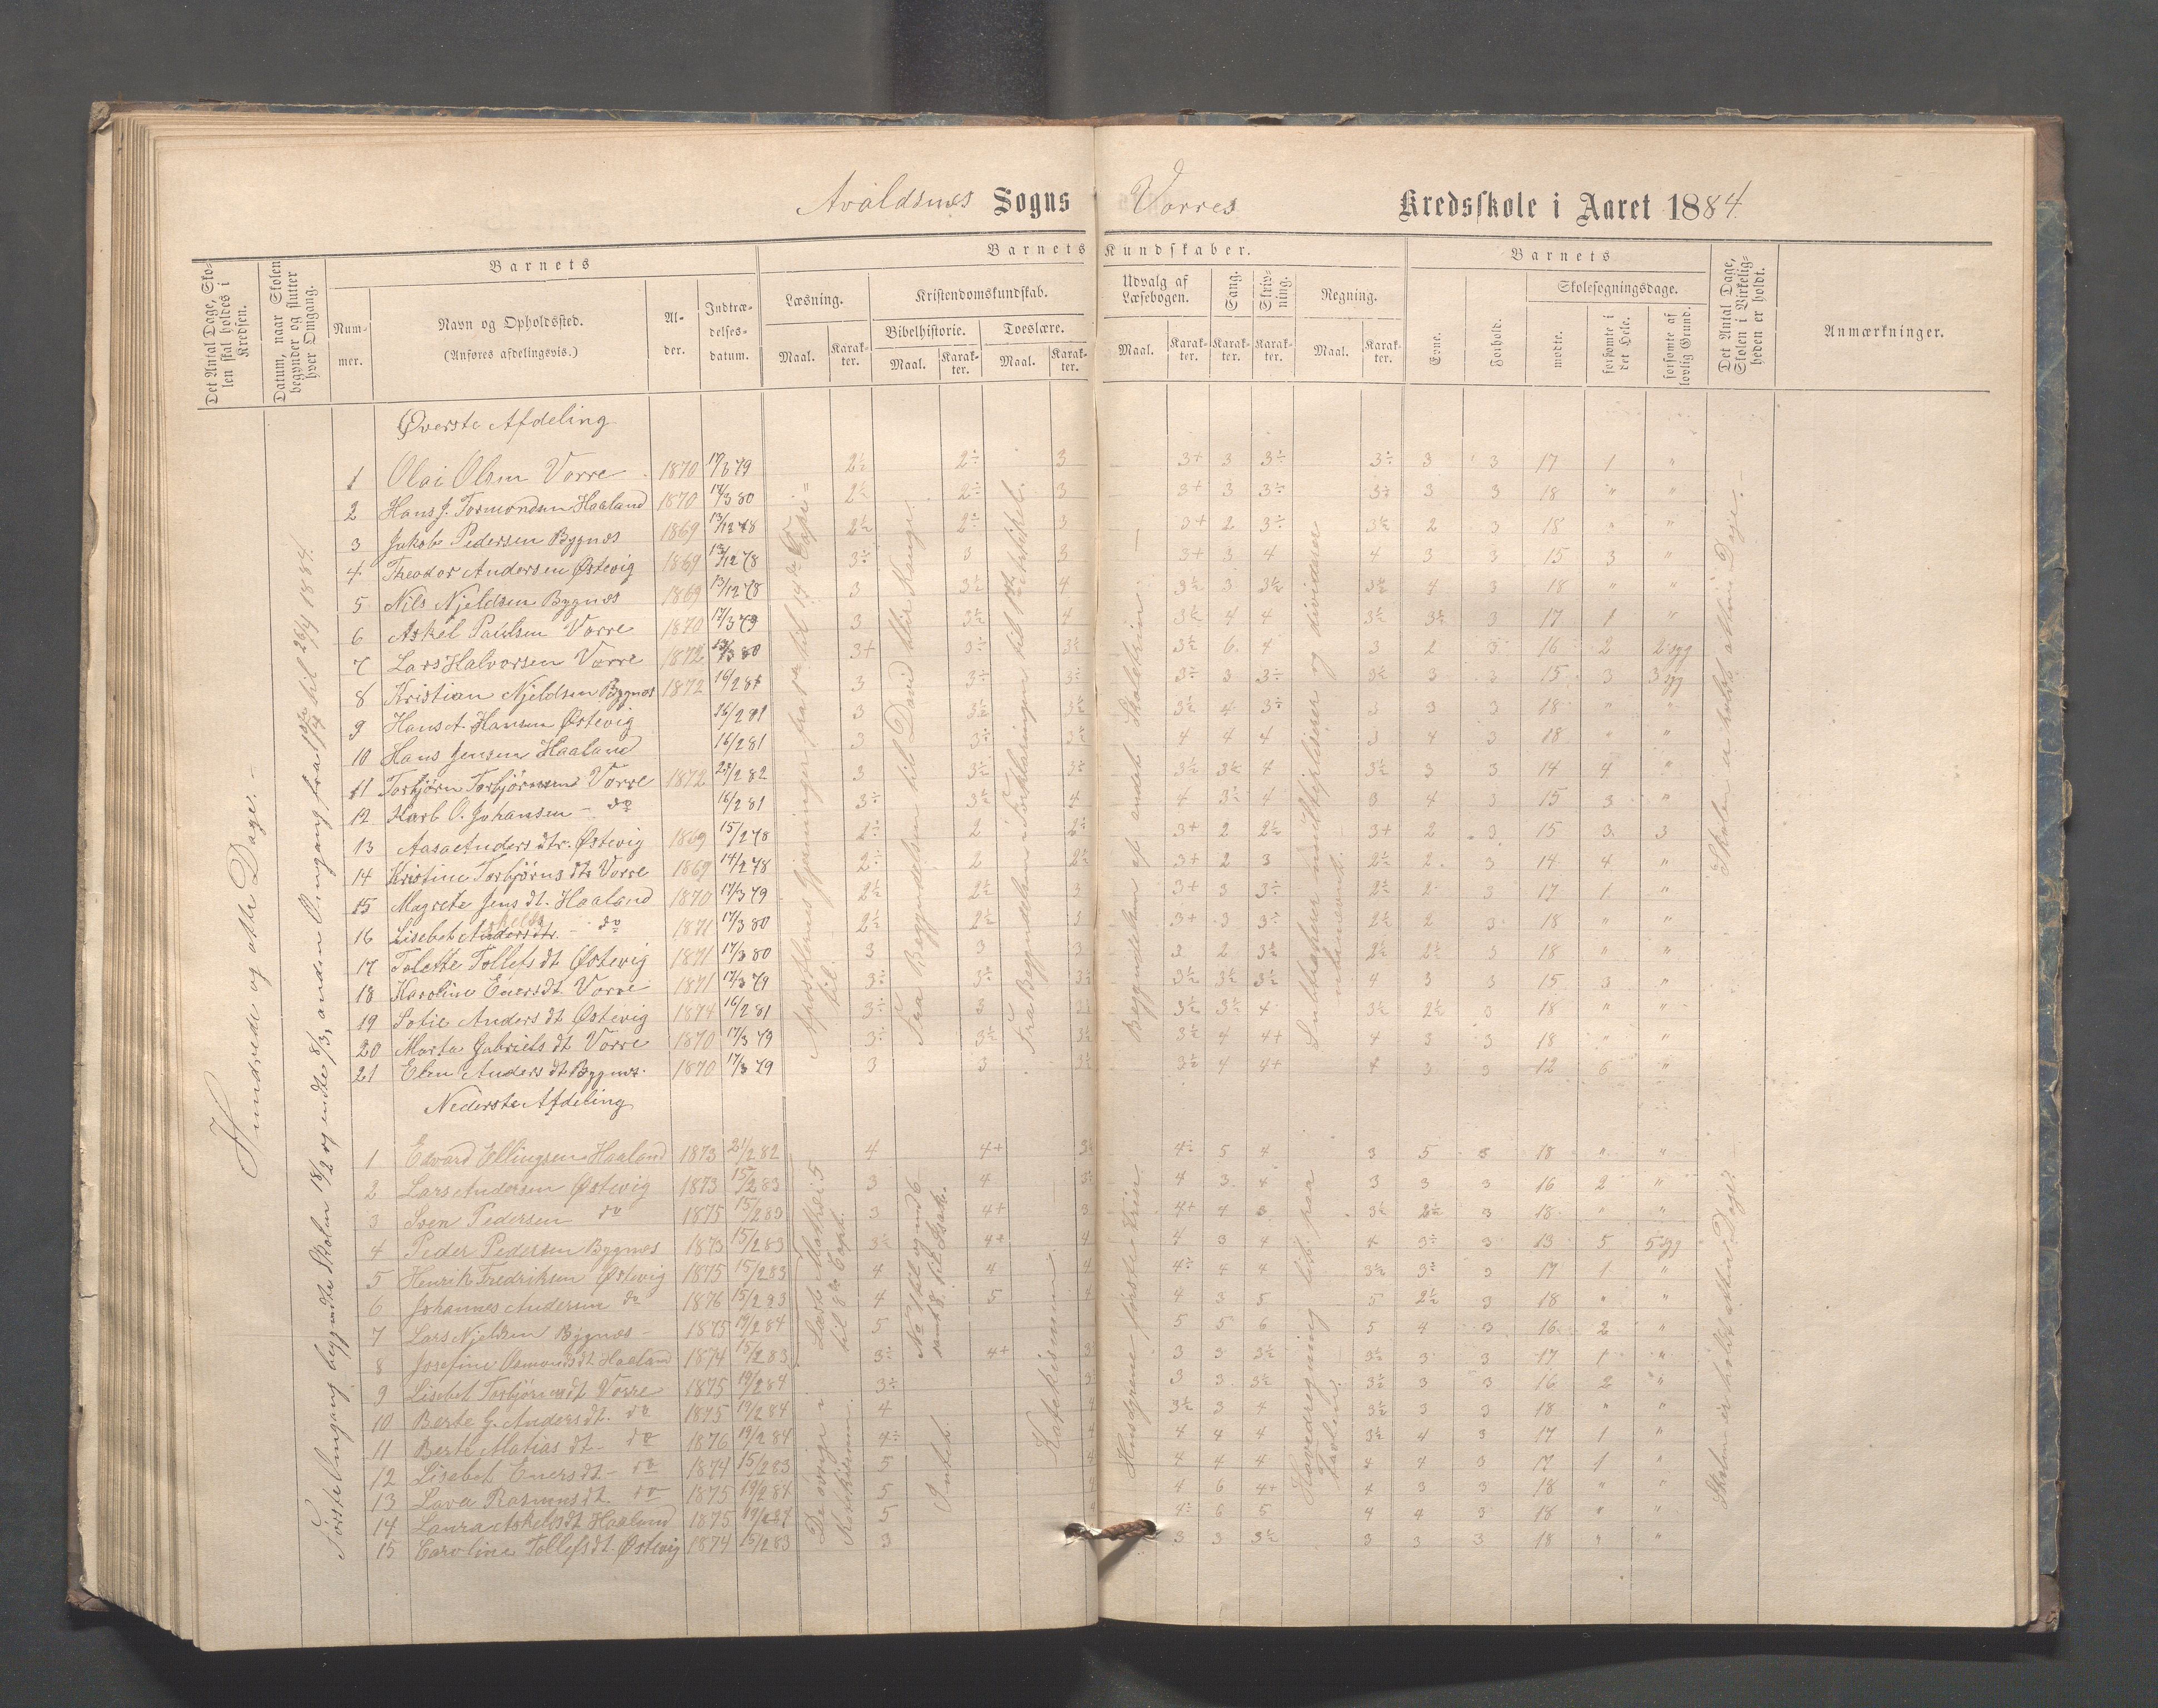 Avaldsnes Sogns Vorres Kredsskole i Aaret 1884.
Det Antal Dage, Skolen skal holdes i Kredsen.
Datum, naar Skolen begynder og slutter hver Omgang.
Barnets
Nummer.
Navn og Opholdssted.
(Anføres afdelingsvis.)
Alder.
Indtrædelsesdatum.
Barnets Kundskaber.
Læsning.
Maal. Karakter.
Kristendomskundskab.
Bibelhistorie.
Maal. Karakter.
Troeslære.
Maal. Karakter.
Udvalg af Læsebogen.
Maal. Karakter.
Sang.
Karakter.
Skrivning.
Karakter.
Regning.
Maal. Karakter.
Barnets
Evne.
Forhold.
Skolesøgningsdage.
mødte.
forsømte i det Hele.
forsømte af lovlig Grund.
Det Antal Dage, Skolen i Virkeligheden er holdt.
Anmærkninger.
Hundrede og otte Dage.-
Første Omgang begyndte Skolen 18/2 og endte 8/3, anden Omgang fra til 26/4 1884.
Øverste Afdeling
1 Olai Olsen Vorre 1870 17/3 79 3 3+ 3 3÷ 3÷ 3 3 17 1 "
2 Hans J. Tormondsen Haaland 1870 17/3 80 3 3+ 3 3 3 18 " "
3 Jakob Pedersen Bygnes 1869 13/12 78 3 3+ 2 3÷ 3½ 2 3 18 " "
4 Theodor Andersen Østevig 1869 13/12 78 3÷ 3 3 3+ 3 4 4 3 3 15 3 "
5 Nils Njeldsen Bygnes 1869 13/12 78 3 3½ 4 3½ 3 3½ 3½ 4 3 18 " "
6 Askel Paulsen Vorre 1870 17/3 79 3 3½ 4 3½ 4 4 3½ 3½ 3 17 1 "
7 Lars Halvorsen Vorre 1872 3+ 3÷ 3½ 3½ 6 4 3 2 3 16 2 2 syg
8 Kristian Njeldsen Bygnes 1872 16/2 81 3 3÷ 3÷ 3÷ 3 3÷ 3½ 3 15 3 3 syg
9 Hans A. Hansen Østevig 16/2 81 3 3½ 3½ 3½ 4 3÷ 3 3 3 18 " "
10 Hans Jensen Haaland 16/2 81 3 3÷ 3½ 4 4 4 3 4 3 18 " "
11 Torbjørn Torbjørnsen Vorre 1872 21/2 82 3 3½ 3÷ 3½ 3½ 4 3½ 3 3 14 4 "
12 Karl O. Johansen - do 16/2 81 3÷ 3½ 4 4 3½ 4 3 4 3 15 3 "
13 Aasa Anders dtr. Østevig 1869 15/2 78 2÷ 2 3+ 2 2½ 3+ 2 3 15 3 3
14 Kristine Torbjørns dt Vorre 1869 14/2 78 2÷ 2 2½ 3+ 2 3 2½ 2 3 14 4 "
15 Magrete Jens dt. Haaland 1870 17/3 79 2½ 2½ 3 3+ 3 3÷ 2 3 17 1 "
16 Lisebet - do 1871 17/3 80 2½ 2½ 3 3+ 3 3÷ 2½ 2 3 18 " "
17 Tolette Tollefs dt Østevig 1871 17/3 80 3 3 3 3 2 3½ 2½ 2½ 3 18 " "
18 Karoline Eners dt Vorre 1871 17/3 79 3÷ 3÷ 3½ 3½ 3½ 3½ 4 3 3 15 3 "
19 Sofie Anders dt Østevig 1874 16/2 81 3÷ 3 3½ 3½ 4 3½ 2½ 3 18 " "
20 Marta Gabriels dt Vorre 1870 17/3 79 3÷ 3½ 3½ 3½ 4 4+ 4 3 3 18 " "
21 Elen Anders dt Bygnes 1870 17/3 79 3 3 3½ 3½ 4 4+ 4 3 3 12 6 "
Apostlernes Gjerninger fra 1ste til 14de Kapi=
til.
Fra Begyndelsen til David blir Konge.
Fra Begyndelsen i Forklaringen til
Begyndelsen af andet Skoletrin.
Subtraherer med Skjelsiser og dividerer
ubenævnt.
Skolen er holdt atten Dage.-
Nederste Afdeling
1 Edvard Ellingsen Haaland 1873 21/2 82 4 4+ 4÷ 5 4 3 5 3 18 " "
2 Lars Andersen Østevig 1873 15/2 83 3 4 4 3 4 3 3 3 16 2 "
3 Sven Pedersen do 1875 15/2 83 3 4+ 3 4+ 4 3 3½ 2½ 3 18 " "
4 Peder Pedersen Bygnes 1873 15/2 83 3½ 4 4 3 4 4 3÷ 3 13 5 5 syg
5 Henrik Fredriksen Østevig 1875 15/2 83 4 4 4 4÷ 4 4 3½ 3÷ 3 17 1 "
6 Johannes Andersen do 1876 15/2 83 4 5 4 4 3 5 5 2½ 3 18 " "
7 Lars Njeldsen Bygnes - 1875 19/2 84 5 5 5 6 5 4 3 16 2 "
8 Josefine Osmonds dt Haaland 1874 15/2 83 3÷ 4+ 3 3 3½ 3½ 3 3 17 1 "
9 Lisebet Torbjørns dt Vorre 1875 19/2 84 3÷ 3 3 3½ 3½ 3 3 16 2 "
10 Berte G. Anders dt. do 1875 19/2 84 4 4 3½ 3 4 3½ 3 3 18 " "
11 Berte Matias dt - do 1876 19/2 84 4÷ 4 4 4 4 3½ 4 3 17 1 "
12 Lisebet Eners dt - do 1874 15/2 83 5 4 4 4 4 4 4 3 17 1 "
13 Lava Rasmus dt do 1875 19/2 84 5 4 4 6 4+ 4 3 3 18 " "
14 Laura Askels dt Haaland 1875 19/2 84 5 4 4÷ 6 5 4 4 3 18 " "
15 Caroline Tollefs dt. Østevig 1874 15/2 83 3 3 3 3½ 3 3 3 18 " "
Læst Matthæi 5
til 8de Capt.
De øvrige i
No til og med 6
samt 8 til
Intet.
Katekismen.
Husegrene første Trin
Hovedregning lidt paa
Tavlen.
Skolen er holdt atten Dage.